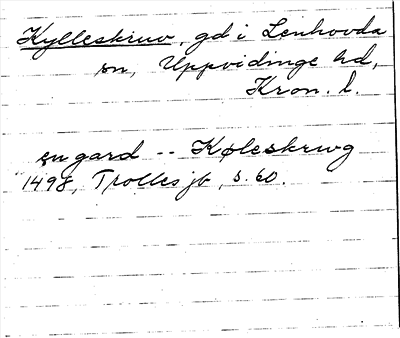 Kylleskruv, gd i Lenhovda
sn, Uppvidinge hd,
Kron. l.
en gard -- Køleskrwg
1498, Trolles jb, s. 60.